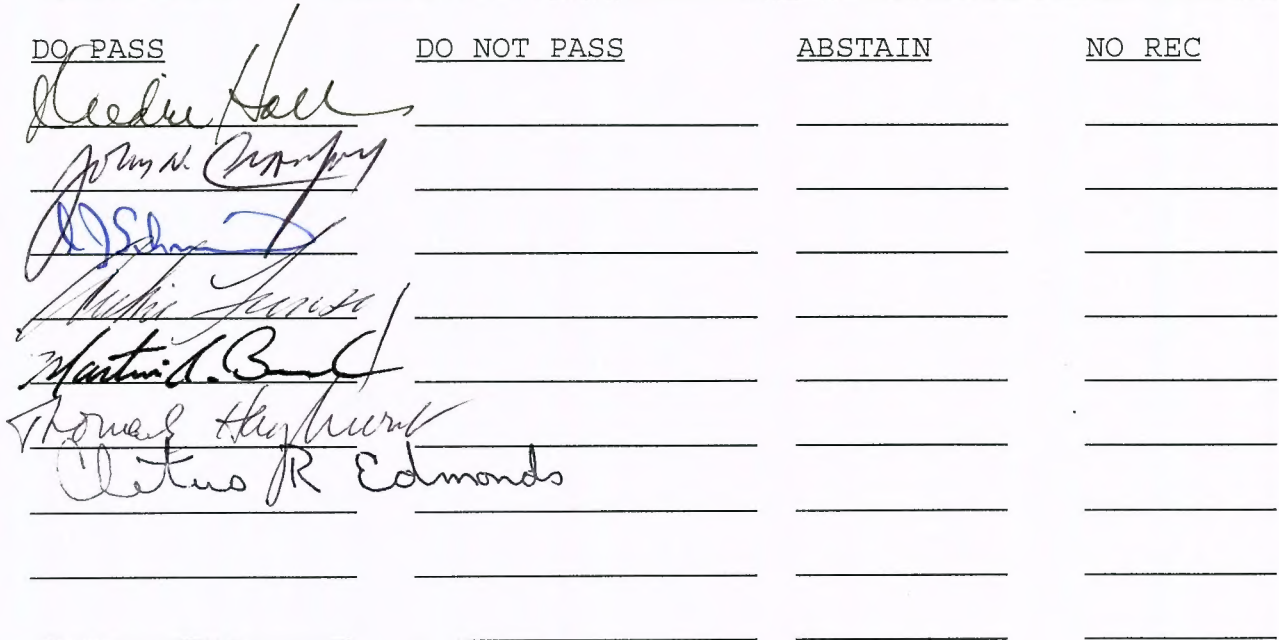 DO PASS DO NOT PASS ABSTAIN NO REC
Deedre Hall
John N. Crawford
Schm
Martin A.
Thomas Hayhurst
Cletus R Edmonds